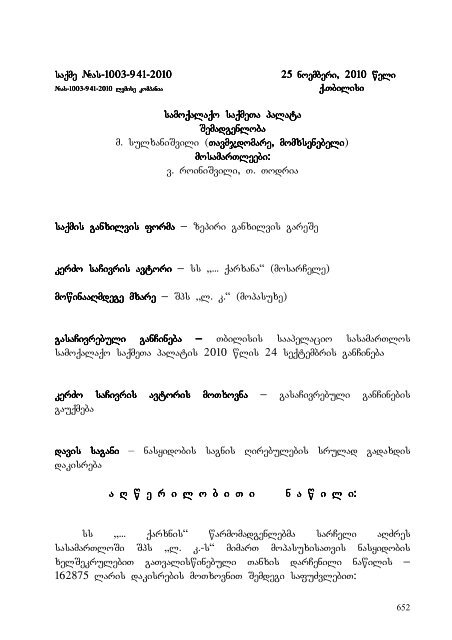 საქმე №ას-1003-941-2010 25 ნოემბერი, 2010 წელი
№ას-1003-941-2010 ლუმისე კომპანია ქ.თბილისი
სამოქალაქო საქმეთა პალატა
შემადგენლობა
მ. სულხანიშვილი (თავმჯდომარე, მომხსენებელი)
მოსამართლეები:
ვ. როინიშვილი, თ. თოდრია
საქმის განხილვის ფორმა – ზეპირი განხილვის გარეშე
კერძო საჩივრის ავტორი – სს ,,... ქარხანა“ (მოსარჩელე)
მოწინააღმდეგე მხარე – შპს ,,ლ. კ.“ (მოპასუხე)
გასაჩივრებული განჩინება – თბილისის სააპელაციო სასამართლოს
სამოქალაქო საქმეთა პალატის 2010 წლის 24 სექტემბრის განჩინება
კერძო საჩივრის ავტორის მოთხოვნა – გასაჩივრებული განჩინების
გაუქმება
დავის საგანი – ნასყიდობის საგნის ღირებულების სრულად გადახდის
დაკისრება
ა ღ წ ე რ ი ლ ო ბ ი თ ი ნ ა წ ი ლ ი:
სს ,,... ქარხნის“ წარმომადგენლებმა სარჩელი აღძრეს
სასამართლოში შპს ,,ლ. კ.-ს“ მიმართ მოპასუხისათვის ნასყიდობის
ხელშეკრულებით გათვალისწინებული თანხის დარჩენილი ნაწილის –
162875 ლარის დაკისრების მოთხოვნით შემდეგი საფუძვლებით:
652